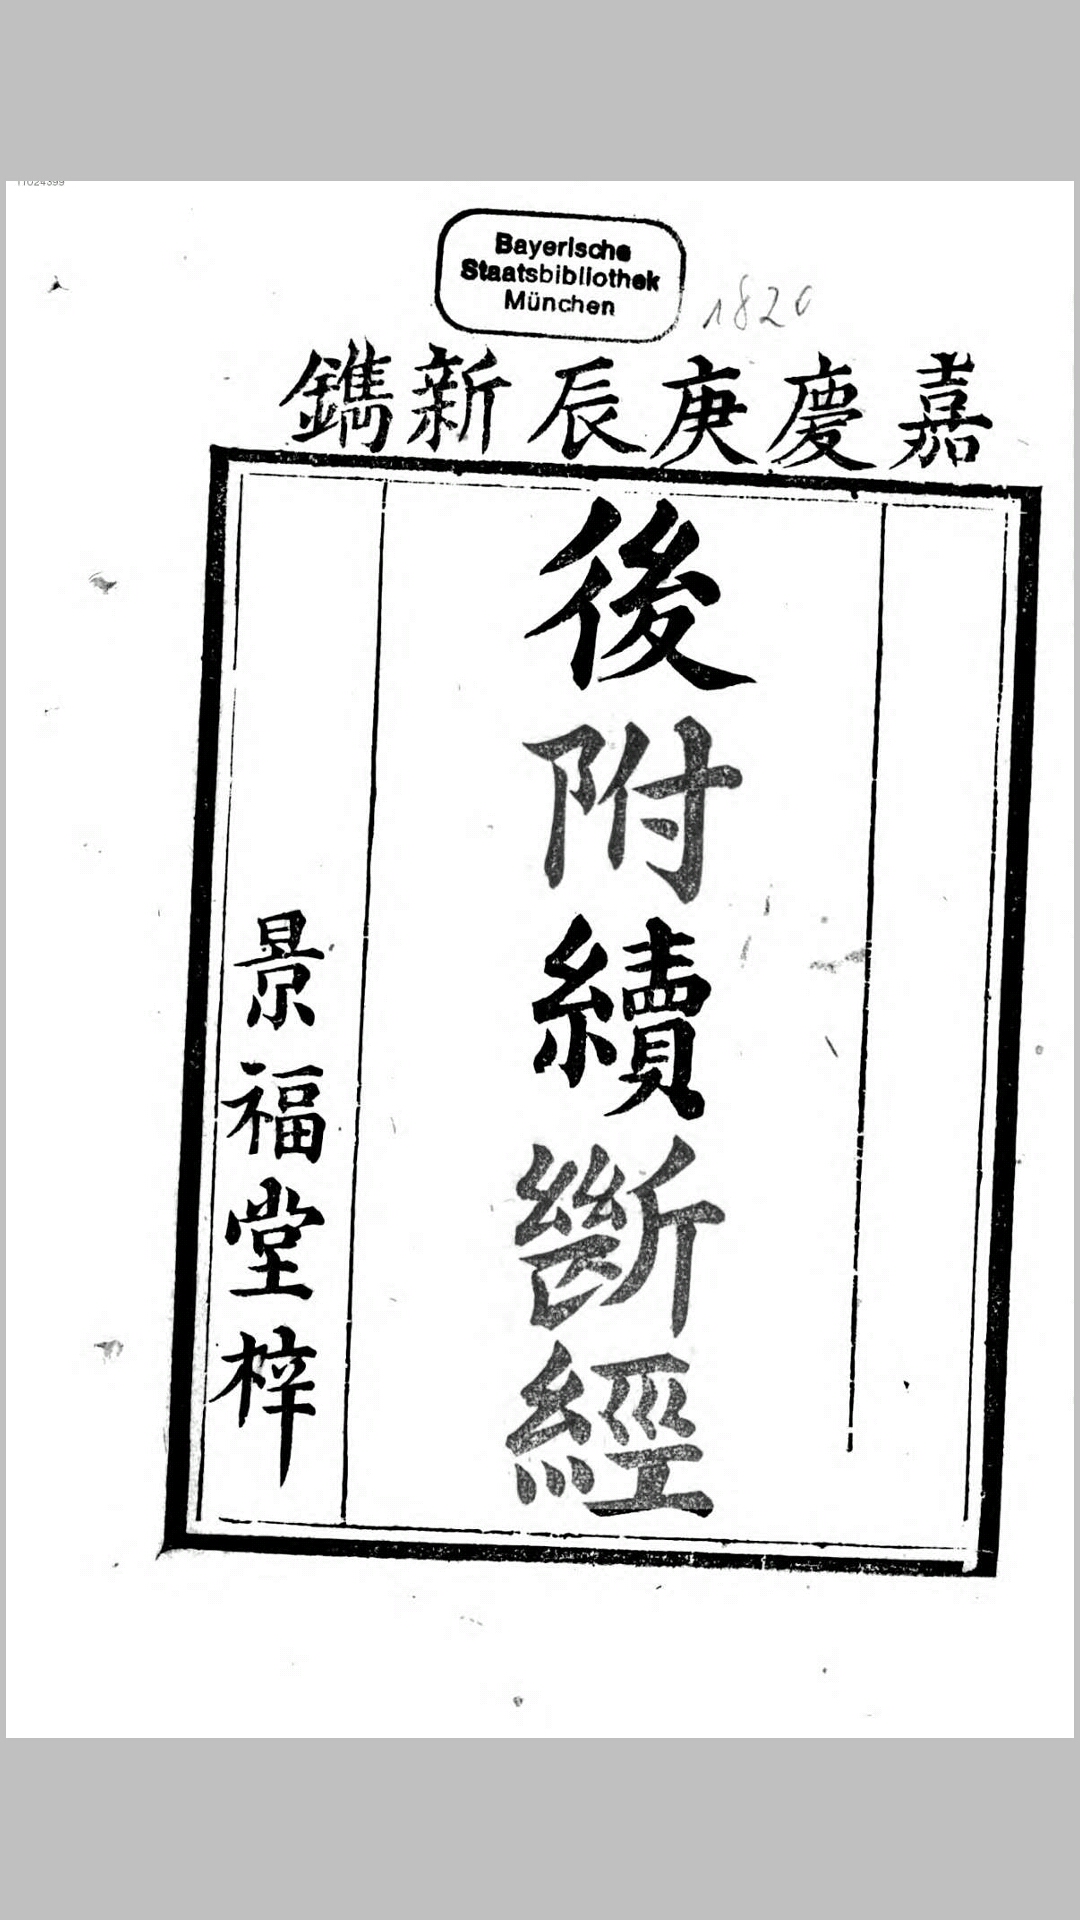 11024399
Bayerische
Staatsbibliothek
München
1820
嘉慶庚辰新鐫
後附續斷經
景福堂梓